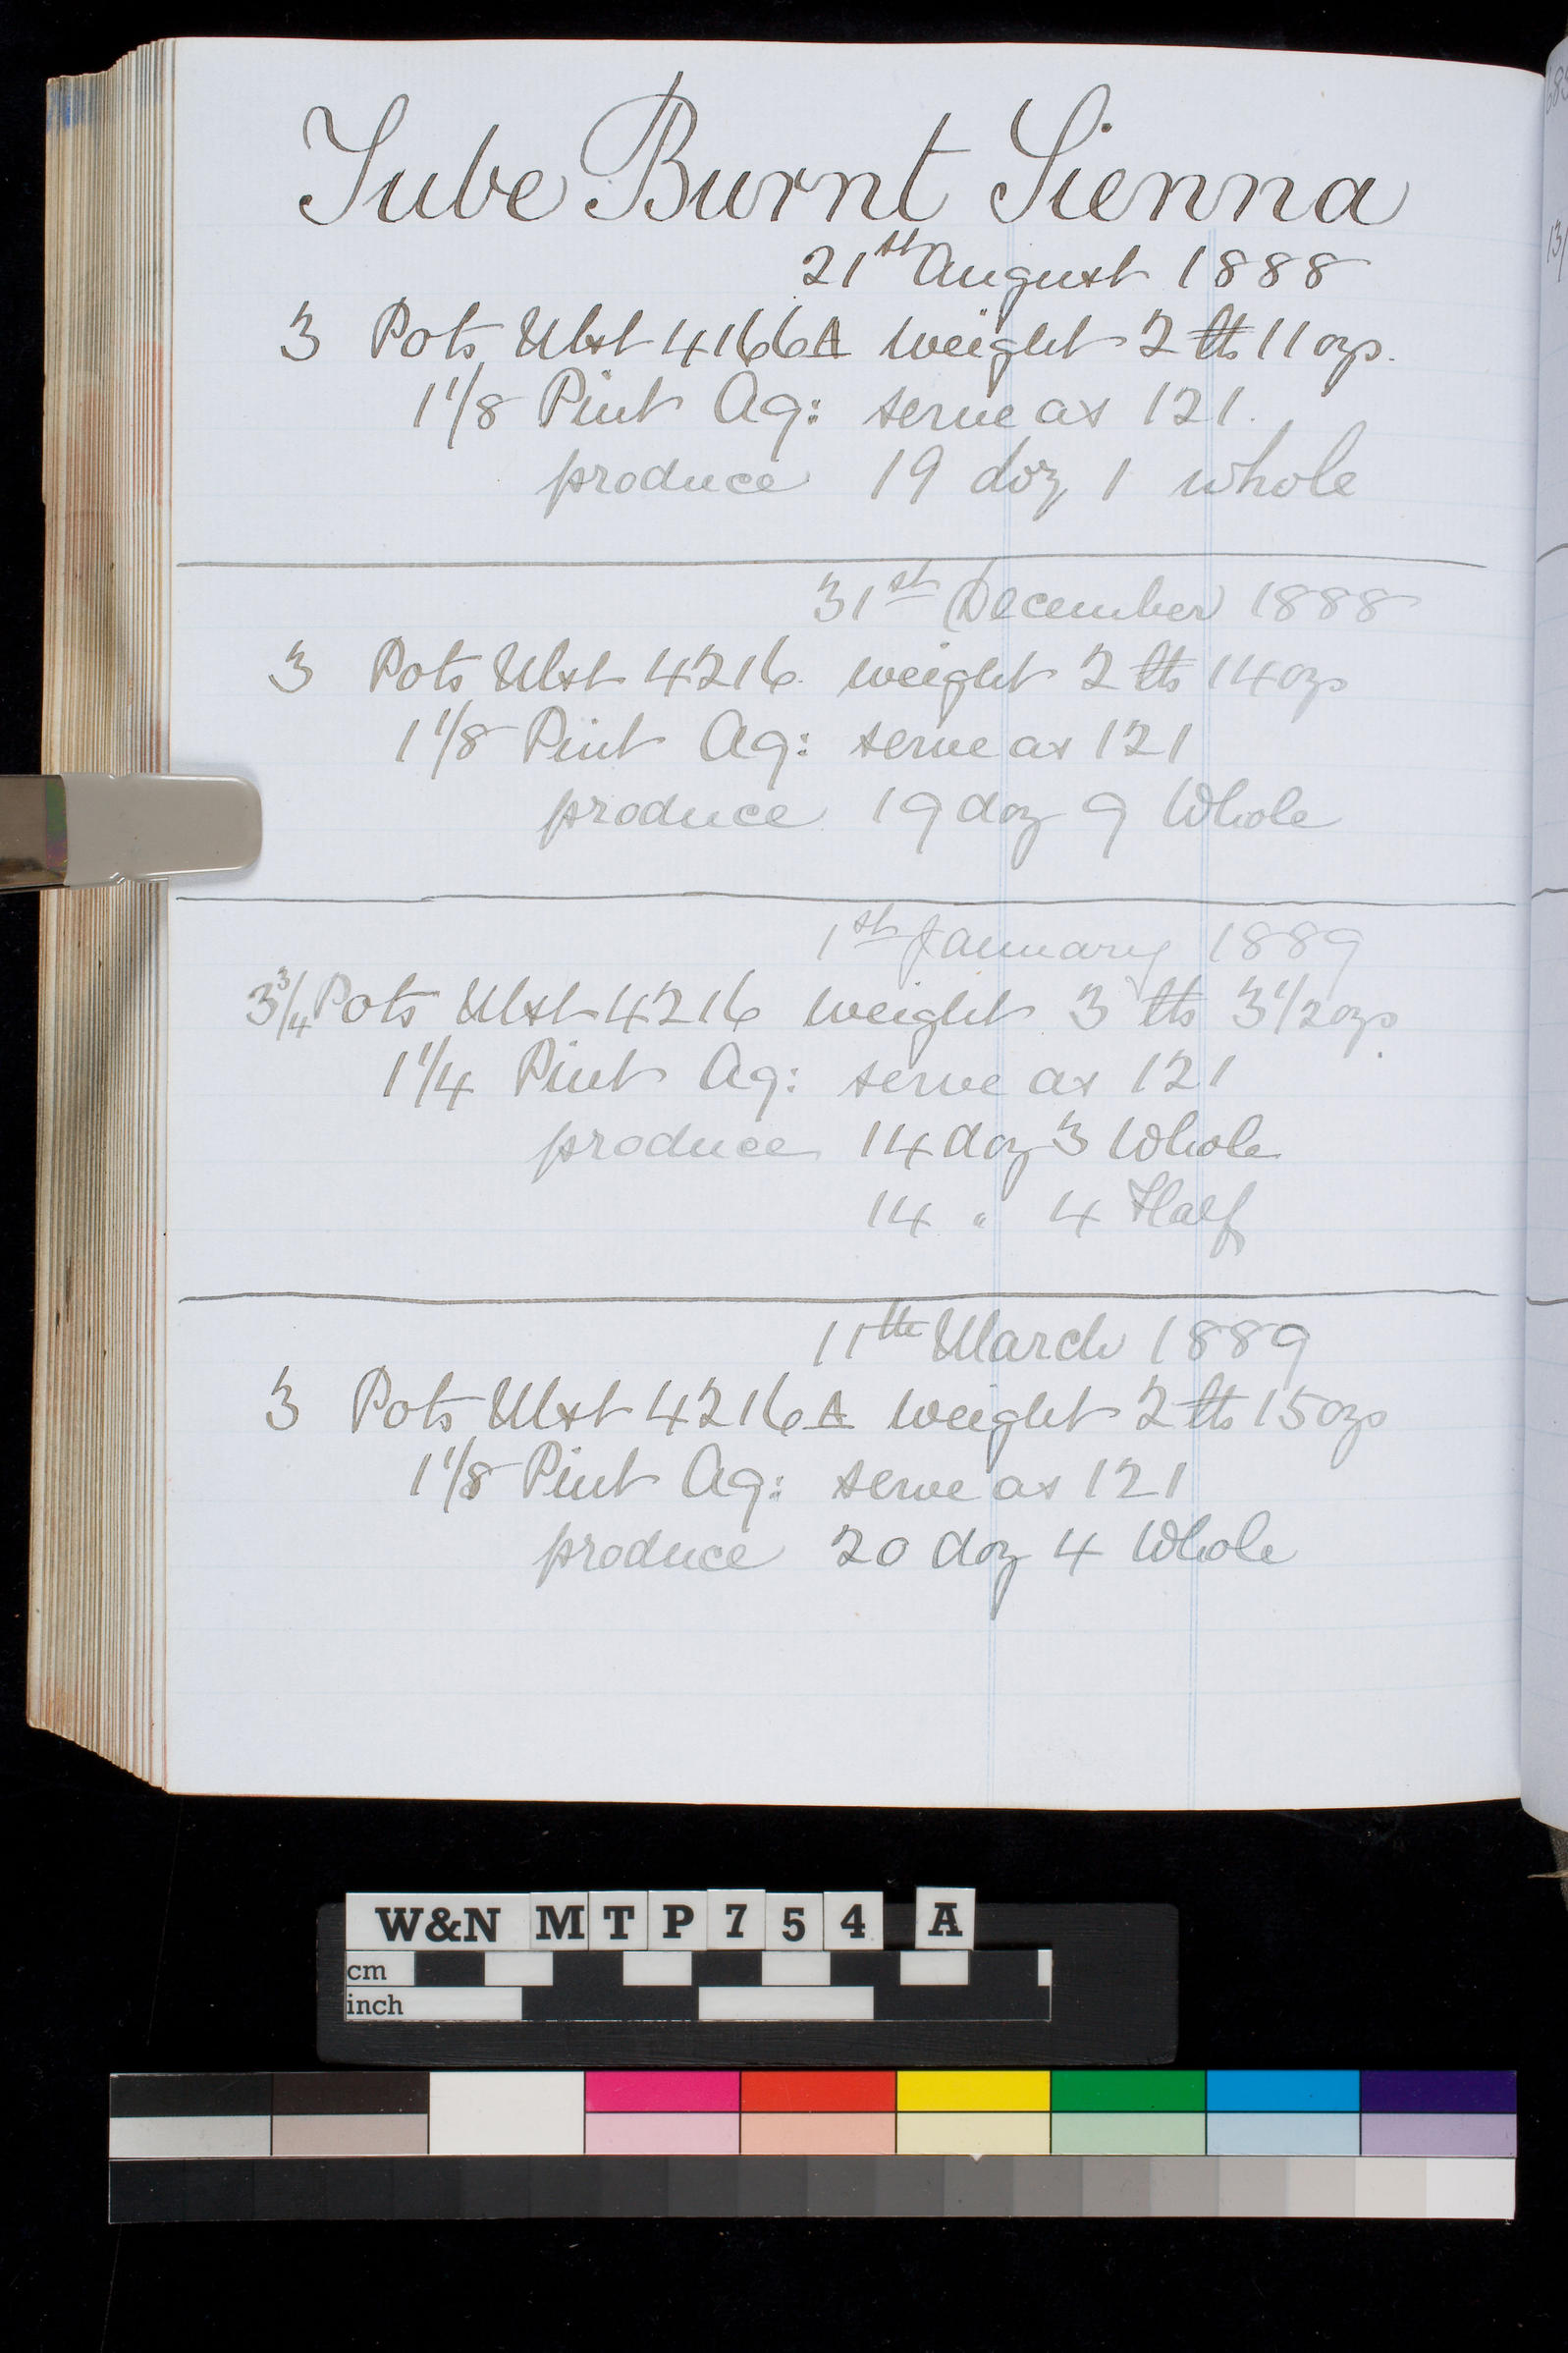 Tube Burnt Sienna
21st August 1888
3 Pots Mxt 4166A weight 2 lbs 11 ozs.
1 1/8 Pint Aq: serve as 121.
produce 19 doz 1 whole
31st December 1888
3 Pots Mxt 4216. weight 2 lbs 14 ozs
1 1/8 Pint Aq: serve as 121
produce 19 doz 9 Whole
1st January 1889
3 3/4 Pots Mxt 4216 weight 3 lbs 3 1/2 ozs.
1 1/4 Pint Aq: serve as 121
produce 14 doz 3 Whole
14 " 4 Half
11th March 1889
3 Pots Mxt 4216A weight 2 lbs 15 ozs
1 1/8 Pint Aq: serve as 121
produce 20 doz 4 Whole
W&N MTP754 A
cm
inch